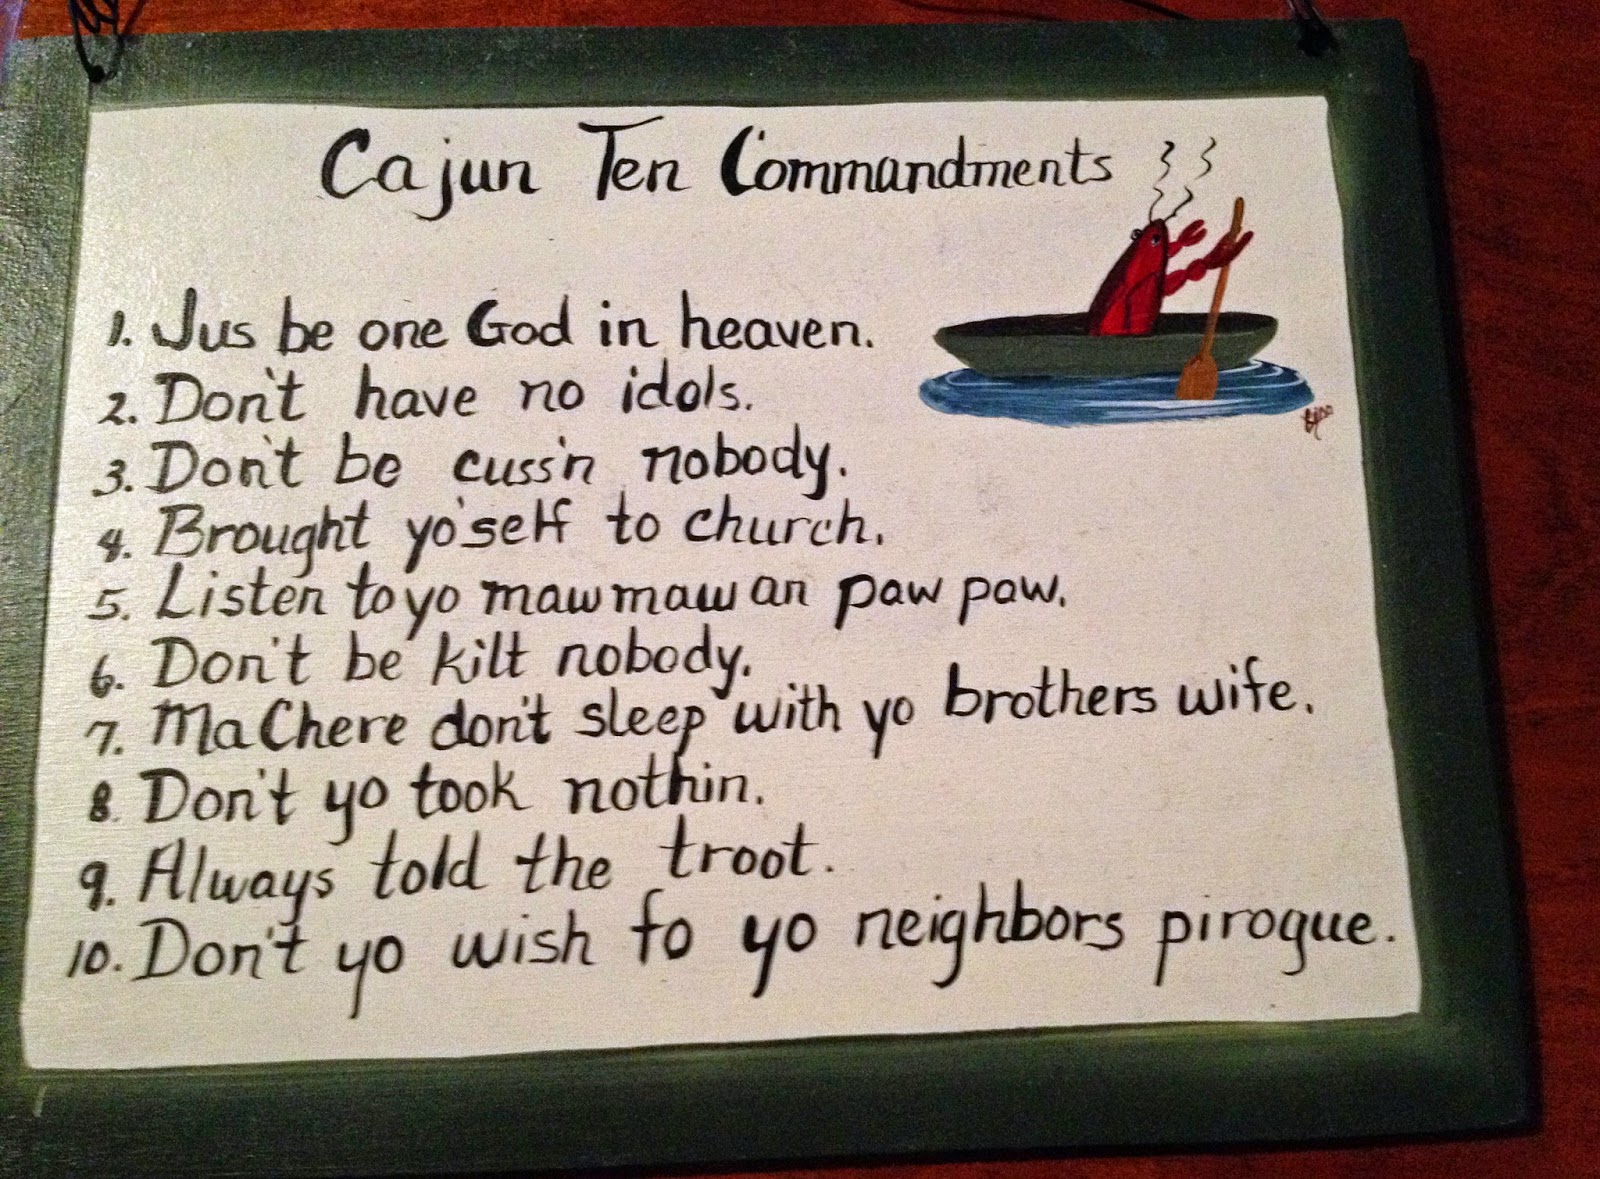 Cajun Ten Commandments
1. Jus be one God in heaven.
2. Don't have no idols.
3. Don't be cuss'n nobody.
4. Brought yo'self to church.
5. Listen to yo maw maw an paw paw.
6. Don't be kilt nobody.
7. Ma Chere don't sleep with yo brothers wife.
8. Don't yo took nothin.
9. Always told the troot.
10. Don't yo wish fo yo neighbors pirogue.